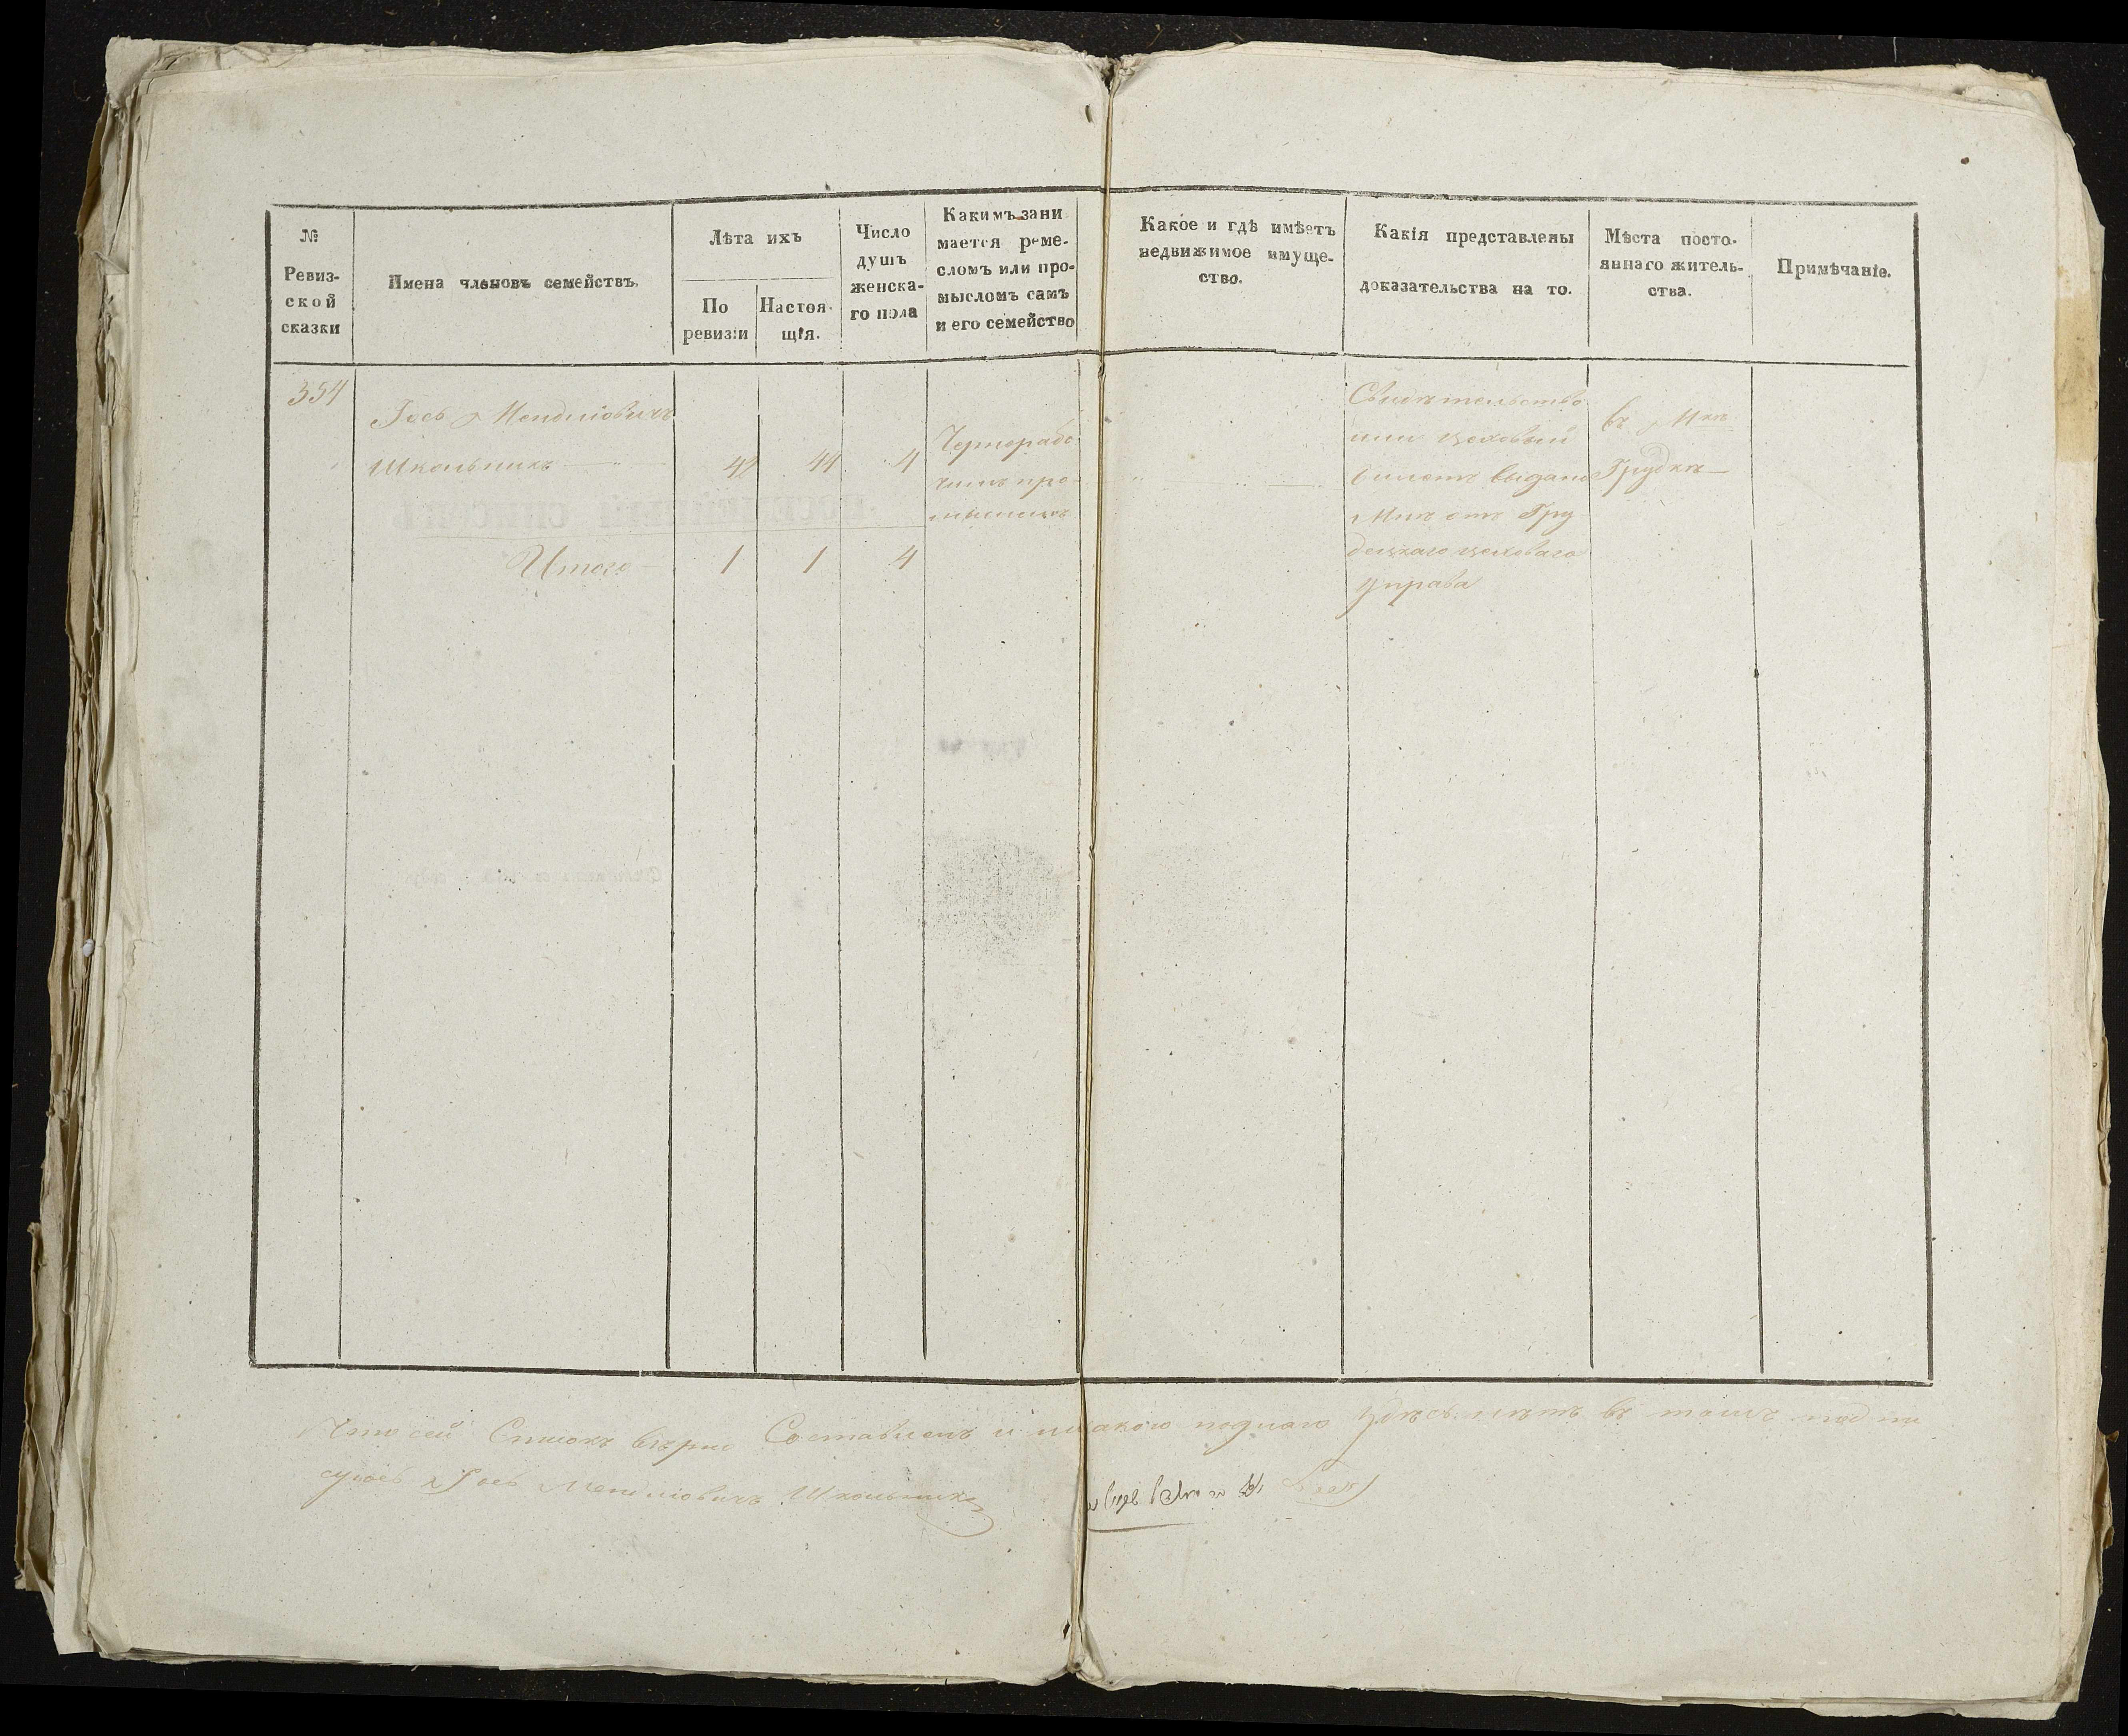 №
Ревиз-
ской
сказки
Имена членовъ семействъ.
Лѣта ихъ
По
ревизіи
Настоя-
щія.
Число
душъ
женска-
го пола
Какимъ зани
мается реме-
сломъ или про-
мысломъ самъ
и его семейство
Какое и гдѣ имѣетъ
недвижимое имуще-
ство.
Какія представлены
доказательства на то.
Мѣста посто-
яннаго житель-
ства.
Примѣчаніе.
354
Іось Мендліовичъ
Школьникъ 42 44 4
Чернорабо
чимъ про-
Свидѣтельство
или цеховый
билетъ выдано
Мнѣ отъ Гру
децкаго цеховаго
управа
въ М
Грудкѣ
Итого 1 1 4
Что сей Списокъ вѣрно Составленъ и никакого здѣсь нѣтъ въ томъ подпи
суюсь Іось Мендліовичъ Школьникъ